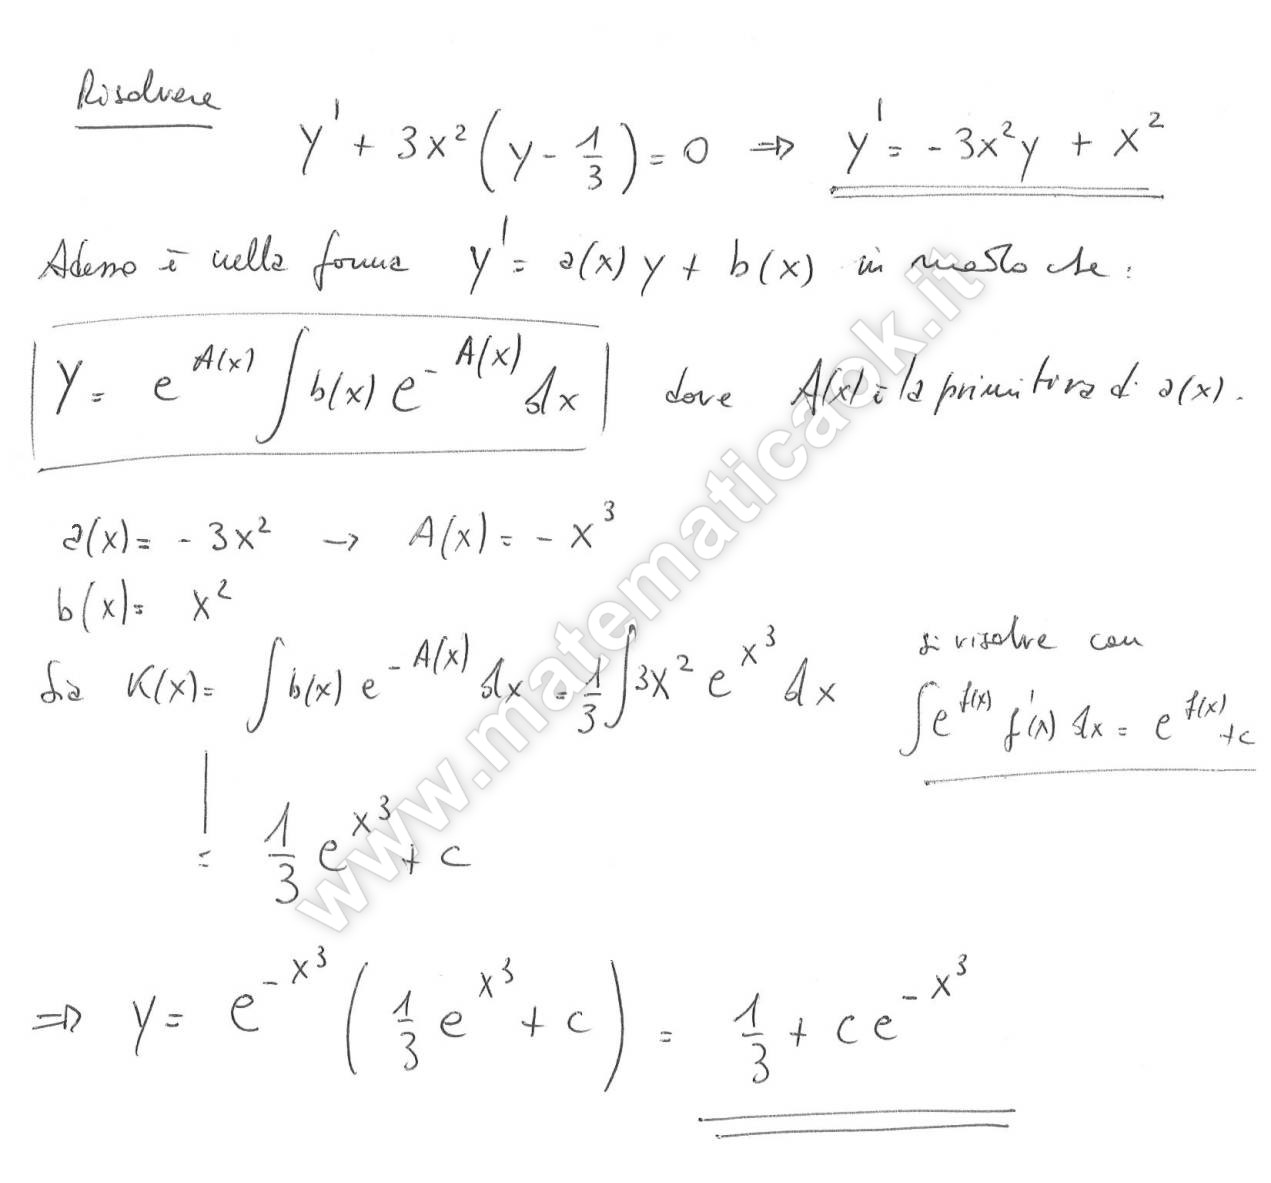 Risolvere
y' + 3x² (y - 1/3) = 0 ⇒ y' = - 3x²y + x²
Adesso è nella forma y' = a(x) y + b(x) in modo che :
y = e^A(x) ∫ b(x) e^-A(x) dx dove A(x) è la primitiva di a(x).
a(x) = - 3x² → A(x) = - x³
b(x) = x²
Sia K(x) = ∫ b(x) e^-A(x) dx = 1/3 ∫ 3x² e^x³ dx
si risolve con
∫ e^f(x) f'(x) dx = e^f(x) + c
= 1/3 e^x³ + c
⇒ y = e^-x³ ( 1/3 e^x³ + c ) = 1/3 + c e^-x³
www.matematicaok.it